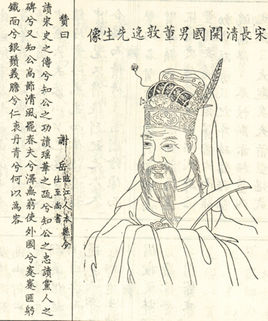 宋長清開國男董敦逸先生像
贊曰
謝岳
臨江人本縣令
仕至尚書
讀宋史之傳兮知公之功讀瑤華之疏兮知公之忠讀黨人之
碑兮又知公高節清風罷春夫兮澤無窮使外國兮蹇蹇匪躬
鐵面兮銀鬚義膽兮仁衷丹青兮何以為容